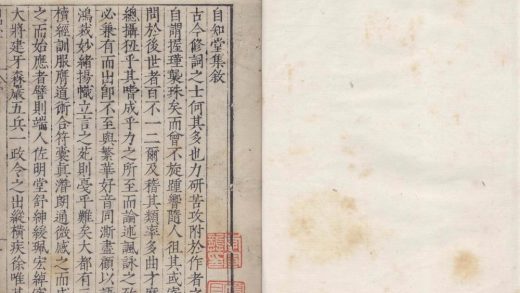 自知堂集敘
古今修詞之士何其多也力研苦攻附於作者之
自謂握瑾襲珠矣而曾不旋踵響隨人徂其或
問於後世者百不一二爾及稽其類率多曲才
總攝狃乎其嘗成乎力之所至而論述諷詠之
必兼有而出卽不至與繁華好音同澌盡顧以語
鴻裁妙緒揚幟立言之則戛乎難矣大都有三
櫝經訓服膺道術合符囊真潛朗通微感之而
之而始應者譬則端人佐明堂舒紳緩珮宏綽
大將建牙森嚴五兵一政令之出縱橫疾徐唯其